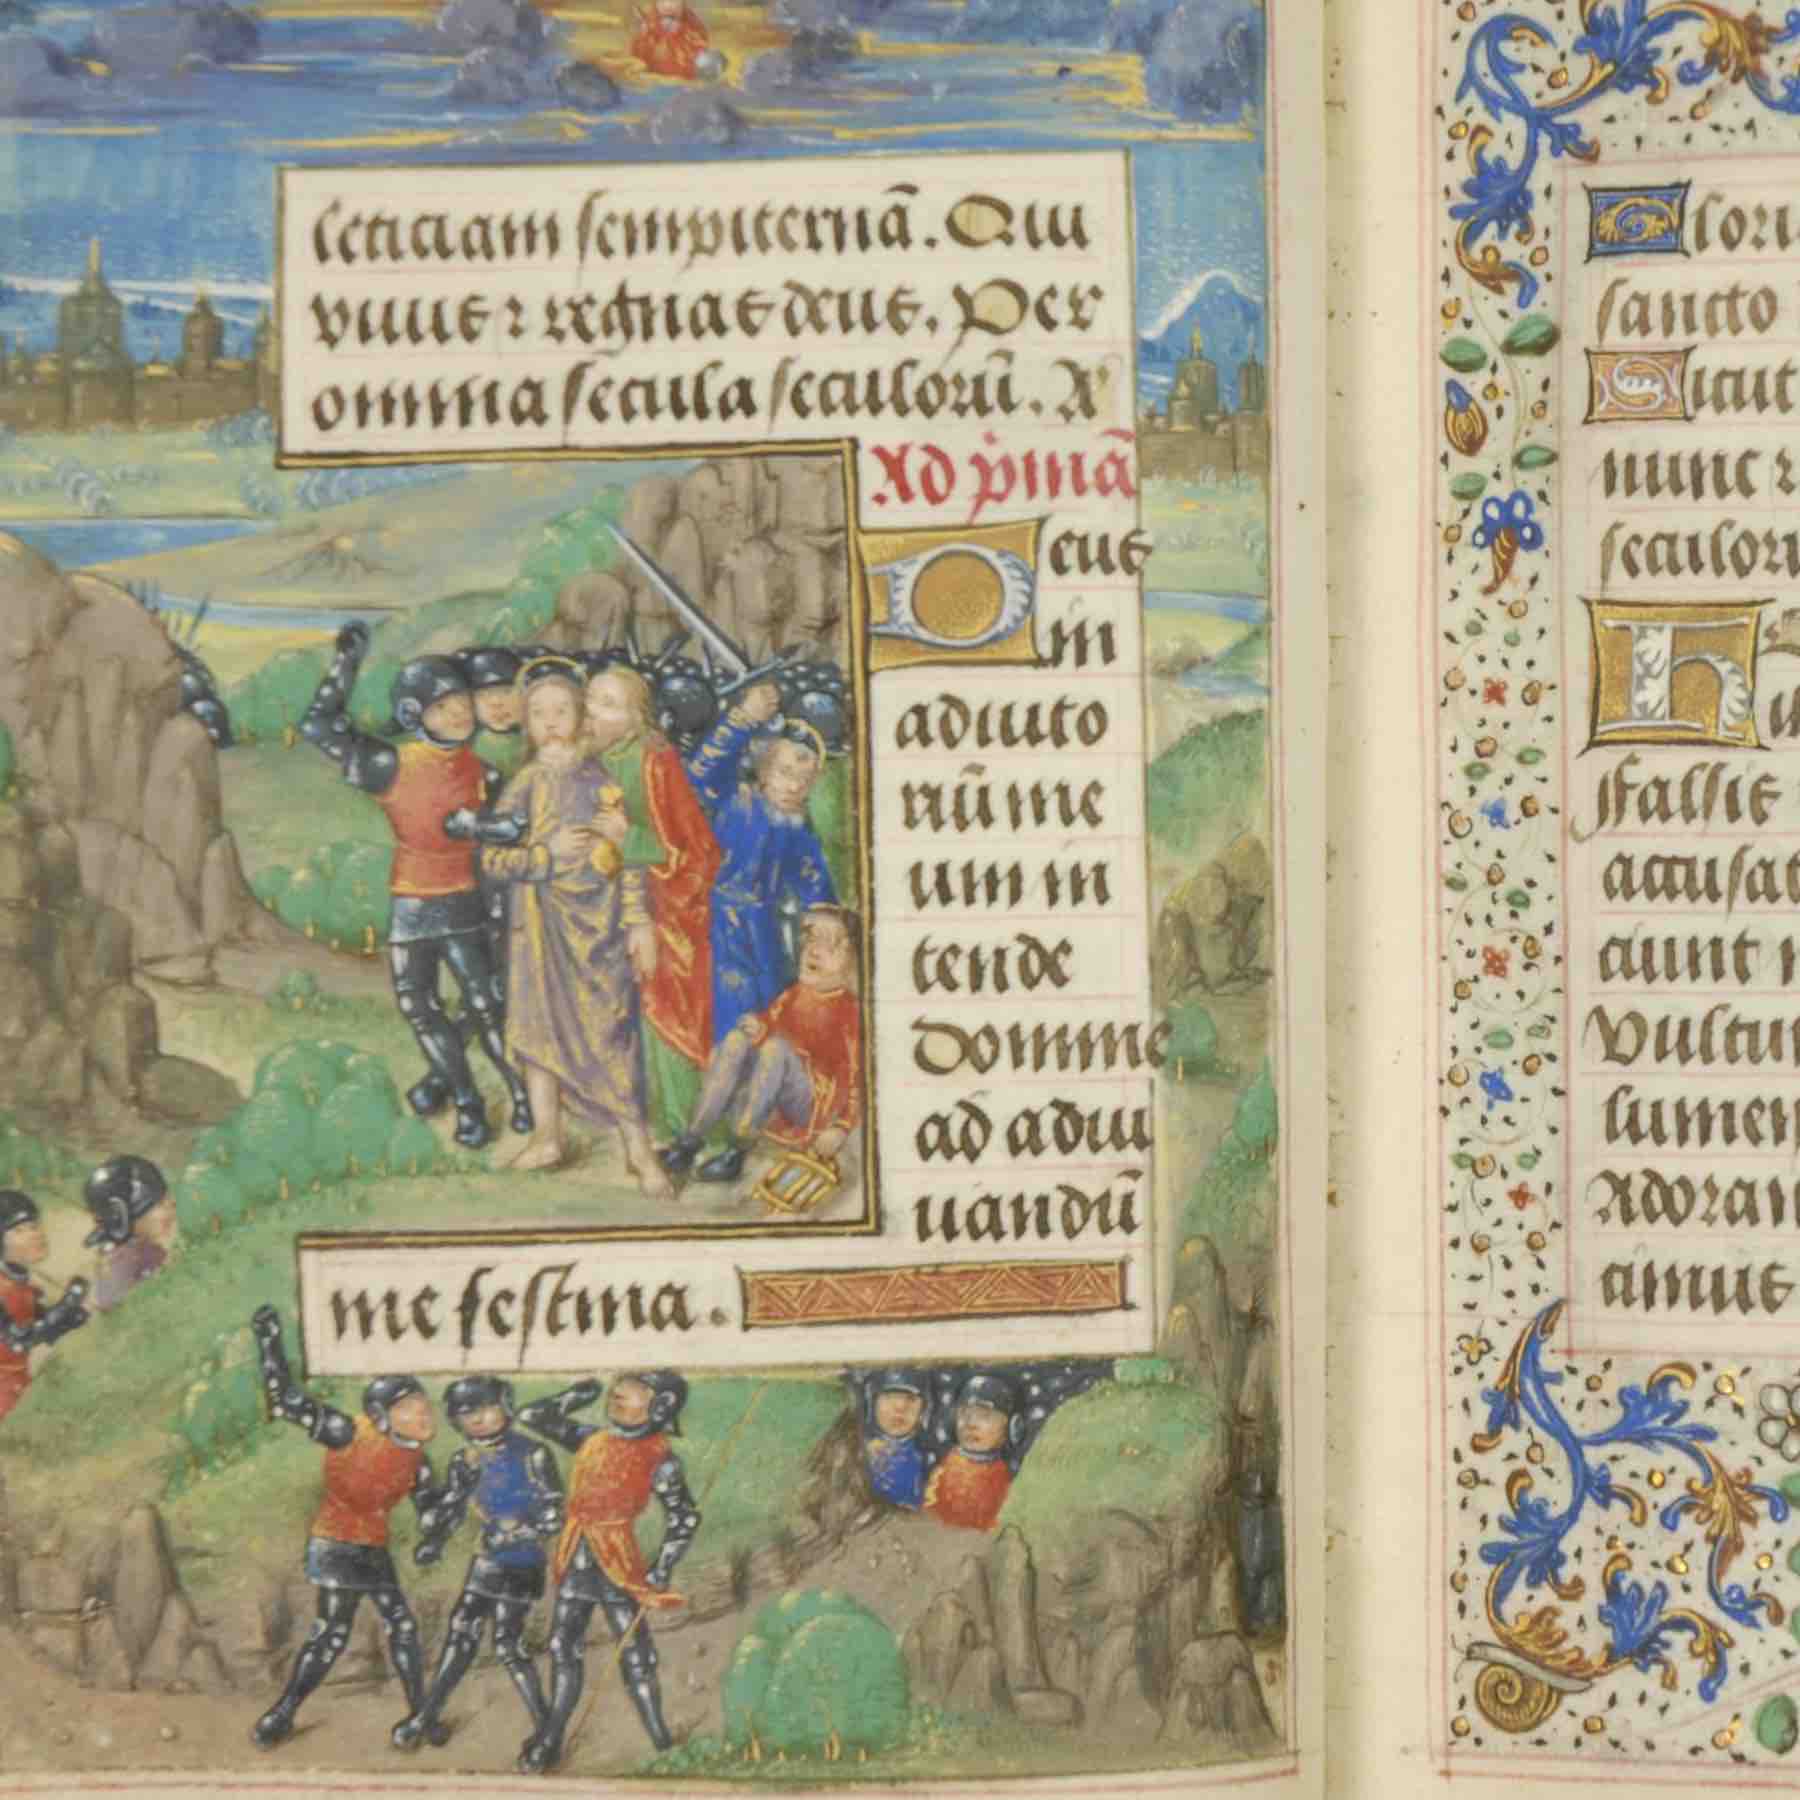 leticiam sempiternā. Qui
viuis ⁊ regnas deus. Per
omnia secula seculorū. A
Ad pͥmā
Deus
in
adiuto
riū me
um in
tende
Domine
ad adiu
uandū
me festina.
Glori
sancto
Sicut
nunc ⁊
seculoru
H
falsis
accusat
ciunt
Vultu
lumen
Adoran
cimus